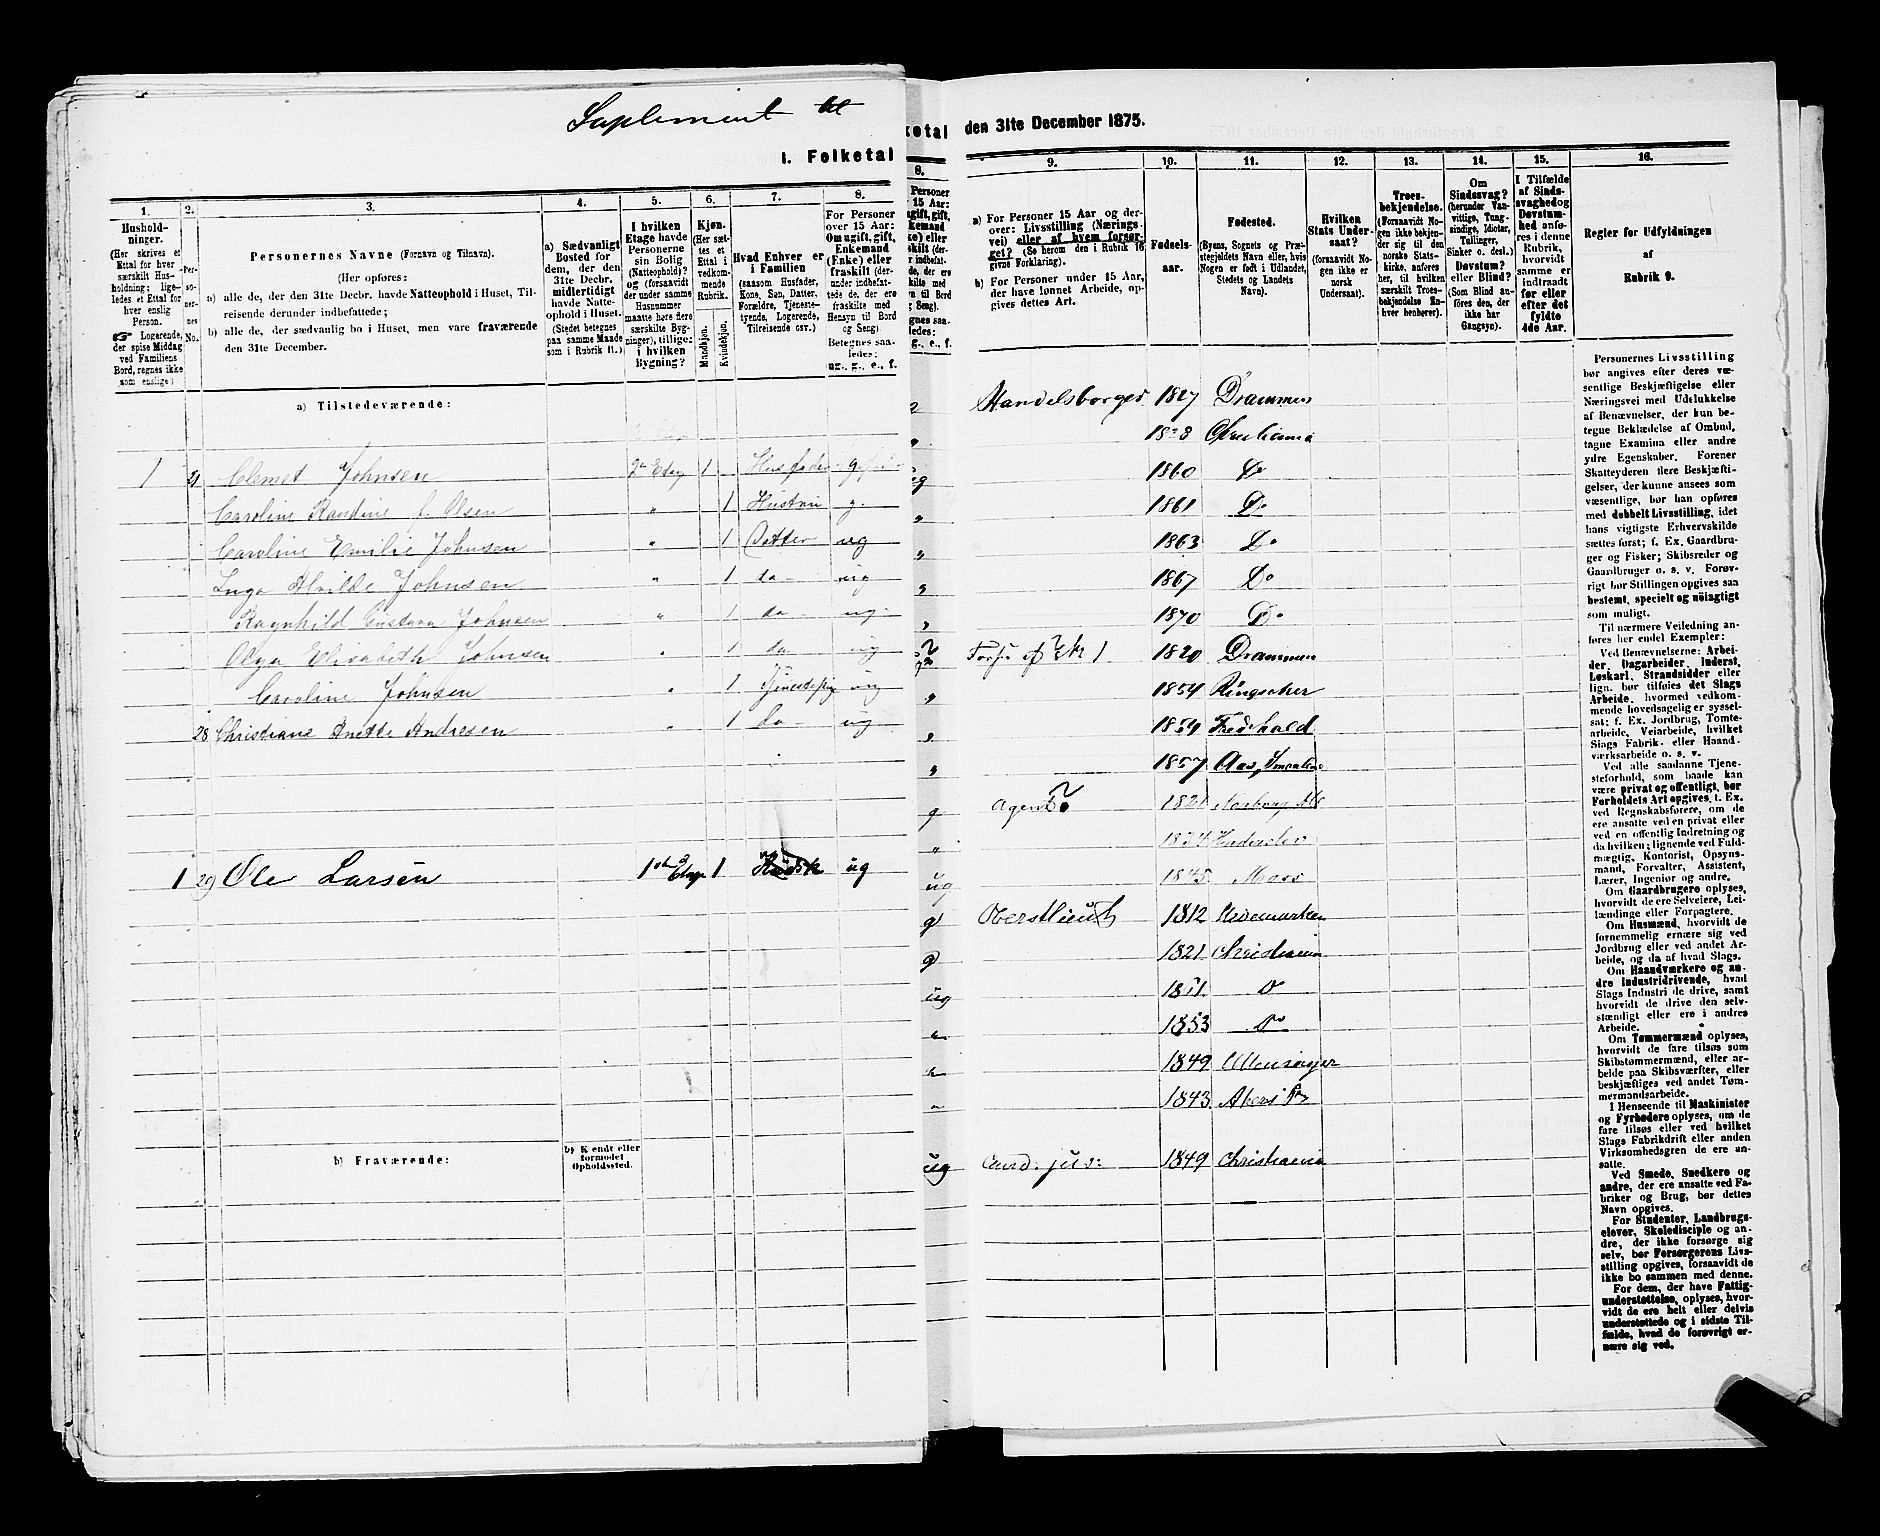 Suplement til
1. Folketal
ketal
den 31te December 1875.
1.
Hushold-
ninger.
(Her skrives et
Ettal for hver
særskilt Hus-
holdning; lige-
ledes et Ettal for
hver enslig
Person.
☞ Logerende,
der spise Middag
ved Familiens
Bord, regnes ikke
som enslige.)
2.
Per-
so-
ner-
nes
No.
3.
Personernes Navne (Fornavn og Tilnavn).
(Her opføres:
a) alle de, der den 31te Decbr. havde Natteophold i Huset, Til-
reisende derunder indbefattede;
b) alle de, der sædvanlig bo i Huset, men vare fraværende
den 31te December.
4.
a) Sædvanligt
Bosted for
dem, der den
31te Decbr.
midlertidigt
havde Natte-
ophold i Huset.
(Stedet betegnes
paa samme Maade
som i Rubrik 11.)
5.
I hvilken
Etage havde
Personerne
sin Bolig
(Natteophold)?
og (forsaavidt
der under samme
Husnummer
maatte høre flere
særskilte Byg-
ninger), tillige:
i hvilken
Bygning?
6.
Kjøn.
(Her sæt-
tes et
Ettal i
vedkom-
mende
Rubrik.
Mandkjøn.
Kvindekjøn.
7.
Hvad Enhver er
i Familien
(saasom Husfader,
Kone, Søn, Datter,
Forældre, Tjeneste-
tyende, Logerende,
Tilreisende osv.)
8.
For Personer
over 15 Aar:
Om ugift, gift,
Enkemand
(Enke) eller
fraskilt (der-
under indbefat-
tede de, der ere
fraskilte med
Hensyn til Bord
og Seng).
Betegnes saa-
ledes:
ug., g., e., f.
8.
Personer
15 Aar:
9.
a) For Personer 15 Aar og der-
over: Livsstilling (Nærings-
vei) eller af hvem forsør-
get? (Se herom den i Rubrik 16
givne Forklaring).
b) For Personer under 15 Aar,
der have lønnet Arbeide, op-
gives dettes Art.
10.
Fødsels-
aar.
11.
Fødested.
(Byens, Sognets og Præ-
stegjeldets Navn eller, hvis
Nogen er født i Udlandet,
Stedets og Landets
Navn).
12.
Hvilken
Stats Under-
saat?
(forsaavidt No-
gen ikke er
norsk
Undersaat).
13.
Troes-
bekjendelse.
(Forsaavidt No-
gen ikke bekjen-
der sig til den
norske Stats-
kirke, anføres
her, til hvilken
særskilt Troes-
bekjendelse En-
hver benhører).
14.
Om
Sindssvag?
(herunder Van-
vittige, Tung-
sindige, Idioter,
Tullinger,
Sinker o. desl.).
Døvstum?
eller Blind?
(Som Blind an-
føres den, der
ikke har
Gangsyn).
15.
I Tilfælde
af Sinds-
svaghed og
Døvstum-
hed anfø-
res i denne
Rubrik,
hvorvidt
samme er
indtraadt
før eller
efter det
fyldte
4de Aar.
16.
Regler for Udfyldningen
af
Rubrik 9.
a) Tilstedeværende:
1 21 Clemet Johnsen 2den Etage 1 Husfader g
Caroline Randine f. Olsen " 1 Hustru g.
Caroline Emilie Johnsen " 1 Datter ug
Inga Alvilde Johnsen " 1 do ug
Ragnhild Gustava Johnsen " 1 do ug.
Olga Elisabeth Johnsen " 1 do ug
Caroline Johnsen " 1 Tjenestepig ug
28 Christiane Anette Andresen " 1 do ug
1 29 Ole Larsen 1ste Etage 1 ug
b) Fraværende:
b) Kjendt eller
formodet
Opholdssted.
Handelsborger 1827 Drammen
" 1828 Christiania
ug 1860 Do
" 1861 Do
" 1863 Do
" 1867 Do
" 1870 Do
1820 Drammen
" 1854 Ringsaker
" 1854 Fredrhald
" 1857 Aas, Smaalene
g Agent 1821
" 1834 Haderslev
ug 1845 Moss
g Oberstlieut 1812 Hedemarken
g 1821 Christiania
ug 1851 Do
" 1853 Do
" 1849 Ullensager
" 1843 Akers Pr
ug Cand: jus: 1849 Christiania
Personernes Livsstilling
bør angives efter deres væ-
sentlige Beskjæftigelse eller
Næringsvei med Udelukkelse
af Benævnelser, der kun be-
tegne Beklædelse af Ombud,
tagne Examina eller andre
ydre Egenskaber. Forener
Skatteyderen flere Beskjæfti-
gelser, der kunne ansees som
væsentlige, bør han opføres
med dobbelt Livsstilling, idet
hans vigtigste Erhvervskilde
sættes først; f. Ex. Gaardbru-
ger og Fisker; Skibsreder og
Gaardbruger o. s. v. Forøv-
rigt bør Stillingen opgives saa
bestemt, specielt og nöiagtigt
som muligt.
Til nærmere Veiledning an-
føres her endel Exempler:
Ved Benævnelserne: Arbei-
der, Dagarbeider, Inderst,
Løskarl, Strandsidder eller
lign. bør tilføies det Slags
Arbeide, hvormed vedkom-
mende hovedsagelig er syssel-
sat; f. Ex. Jordbrug, Tomte-
arbeide, Veiarbeide, hvilket
Slags Fabrik- eller Haand-
værksarbeide o. s. v.
Ved alle saadanne Tjene-
steforhold, som baade kan
være privat og offentligt, bør
Forholdets Art opgives, f. Ex.
ved Regnskabsførere, om de
ere ansatte ved en privat eller
ved en offentlig Indretning og
da hvilken; lignende ved Fuld-
mægtig, Kontorist, Opsyns-
mand, Forvalter, Assistent,
Lærer, Ingeniør og andre.
Om Gaardbrugere oplyses,
hvorvidt de ere Selveiere, Lei-
lændinge eller Forpagtere.
Om Husmænd, hvorvidt de
fornemmelig ernære sig ved
Jordbrug eller ved andet Ar-
beide, og da af hvad Slags.
Om Haandværkere og an-
dre Industridrivende, hvad
Slags Industri de drive, samt
hvorvidt de drive den selv-
stændigt eller ere i andres
Arbeide.
Om Tømmermænd oplyses,
hvorvidt de fare tilsøs som
Skibstømmermænd, eller ar-
beide paa Skibsværfter, eller
beskjæftiges ved andet Tøm-
mermandsarbeide.
I Henseende til Maskinister
og Fyrbødere oplyses, om de
fare tilsøs eller ved hvilket
Slags Fabrikdrift eller anden
Virksomhedsgren de ere an-
satte.
Ved Smede, Snedkere og
andre, der ere ansatte ved Fa-
briker og Brug, bør dettes
Navn opgives.
For Studenter, Landbrugs-
elever, Skoledisciple og an-
dre, der ikke forsørge sig
selv, bør Forsørgerens Livs-
stilling opgives, forsaavidt de
ikke bo sammen med denne.
For dem, der have Fattig-
understøttelse, oplyses, hvor-
vidt de ere helt eller delvis
understøttede og i sidste Til-
fælde, hvad de forøvrigt er-
nære sig ved.